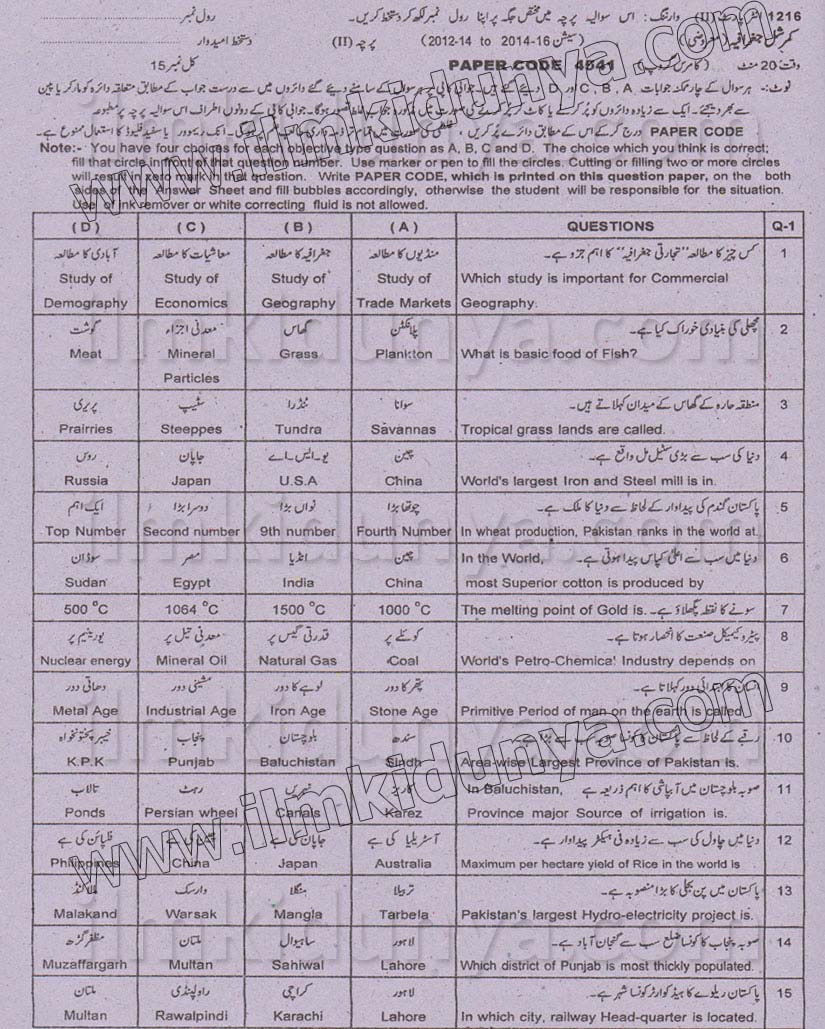 1216 انٹر پارٹ (II) وارننگ: اس سوالیہ پرچہ میں مختص جگہ پر اپنا رول نمبر لکھ کر دستخط کریں۔ رول نمبر
کمرشل جغرافیہ (معروضی) (سیشن 2012-14 to 2014-16) پرچہ (II) دستخط امیدوار
وقت 20 منٹ (کامرس گروپ) PAPER CODE 4541 کل نمبر 15
نوٹ:- ہر سوال کے چار ممکنہ جوابات A ، B ، C اور D دیئے گئے ہیں۔ جوابی کاپی پر ہر سوال کے سامنے دیئے گئے دائروں میں سے درست جواب کے مطابق متعلقہ دائرہ کو مارکر یا پین
سے بھر دیجئے۔ ایک سے زیادہ دائروں کو پُر کرنے یا کاٹ کر پُر کرنے کی صورت میں مذکورہ جواب غلط تصور ہوگا۔ جوابی کاپی کے دونوں اطراف اس سوالیہ پرچہ پر مطبوعہ
PAPER CODE درج کر کے اس کے مطابق دائرے پُر کریں، انک ریموور یا سفید فلیوڈ کا استعمال ممنوع ہے۔
Note:- You have four choices for each objective type question as A, B, C and D. The choice which you think is correct;
fill that circle in front of that question number. Use marker or pen to fill the circles. Cutting or filling two or more circles
will result in zero mark in that question. Write PAPER CODE, which is printed on this question paper, on the both
sides of the Answer Sheet and fill bubbles accordingly, otherwise the student will be responsible for the situation.
Use of ink remover or white correcting fluid is not allowed.
( D ) ( C ) ( B ) ( A ) QUESTIONS Q-1
آبادی کا مطالعہ معاشیات کا مطالعہ جغرافیہ کا مطالعہ منڈیوں کا مطالعہ کس چیز کا مطالعہ "تجارتی جغرافیہ" کا اہم جزو ہے۔ 1
Study of Study of Study of Study of Which study is important for Commercial
Demography Economics Geography Trade Markets Geography.
گوشت معدنی اجزاء گھاس پلانکٹن مچھلی کی بنیادی خوراک کیا ہے۔ 2
Meat Mineral Grass Plankton What is basic food of Fish?
Particles
پریری سٹیپ ٹنڈرا سوانا منطقہ حارہ کے گھاس کے میدان کہلاتے ہیں۔ 3
Prairries Steeppes Tundra Savannas Tropical grass lands are called.
روس جاپان یو۔ایس۔اے چین دنیا کی سب سے بڑی سٹیل مل واقع ہے۔ 4
Russia Japan U.S.A China World's largest Iron and Steel mill is in.
ایک اہم دوسرا بڑا نواں بڑا چوتھا بڑا پاکستان گندم کی پیداوار کے لحاظ سے دنیا کا ملک ہے۔ 5
Top Number Second number 9th number Fourth Number In wheat production, Pakistan ranks in the world at.
سوڈان مصر انڈیا چین دنیا میں سب سے اعلیٰ کپاس پیدا ہوتی ہے۔ In the World, 6
Sudan Egypt India China most Superior cotton is produced by
500 °C 1064 °C 1500 °C 1000 °C The melting point of Gold is. سونے کا نقطہ پگھلاؤ ہے۔ 7
یورینیم پر معدنی تیل پر قدرتی گیس پر کوئلے پر پیٹروکیمیکل صنعت کا انحصار ہوتا ہے۔ 8
Nuclear energy Mineral Oil Natural Gas Coal World's Petro-Chemical Industry depends on
دھاتی دور مشینی دور لوہے کا دور پتھر کا دور انسان کا ابتدائی دور کہلاتا ہے۔ 9
Metal Age Industrial Age Iron Age Stone Age Primitive Period of man on the earth is called
خیبر پختونخواہ پنجاب بلوچستان سندھ رقبے کے لحاظ سے پاکستان کا کونسا صوبہ سب سے بڑا ہے۔ 10
K.P.K Punjab Baluchistan Sindh Area-wise Largest Province of Pakistan is.
تالاب رہٹ نہریں کاریز صوبہ بلوچستان میں آبپاشی کا اہم ذریعہ ہے In Baluchistan, 11
Ponds Persian wheel Canals Karez Province major Source of irrigation is.
فلپائن کی ہے چین کی ہے جاپان کی ہے آسٹریلیا کی ہے دنیا میں چاول کی سب سے زیادہ فی ہیکٹر پیداوار ہے۔ 12
Philippines China Japan Australia Maximum per hectare yield of Rice in the world is
مالاکنڈ وارسک منگلا تربیلا پاکستان میں پن بجلی کا بڑا منصوبہ ہے۔ 13
Malakand Warsak Mangla Tarbela Pakistan's largest Hydro-electricity project is.
مظفر گڑھ ملتان ساہیوال لاہور صوبہ پنجاب کا کونسا ضلع سب سے گنجان آباد ہے۔ 14
Muzaffargarh Multan Sahiwal Lahore Which district of Punjab is most thickly populated.
ملتان راولپنڈی کراچی لاہور پاکستان ریلوے کا ہیڈ کوارٹر کونسا شہر ہے۔ 15
Multan Rawalpindi Karachi Lahore In which city, railway Head-quarter is located.
www.ilmkidunya.com
www.ilmkidunya.com